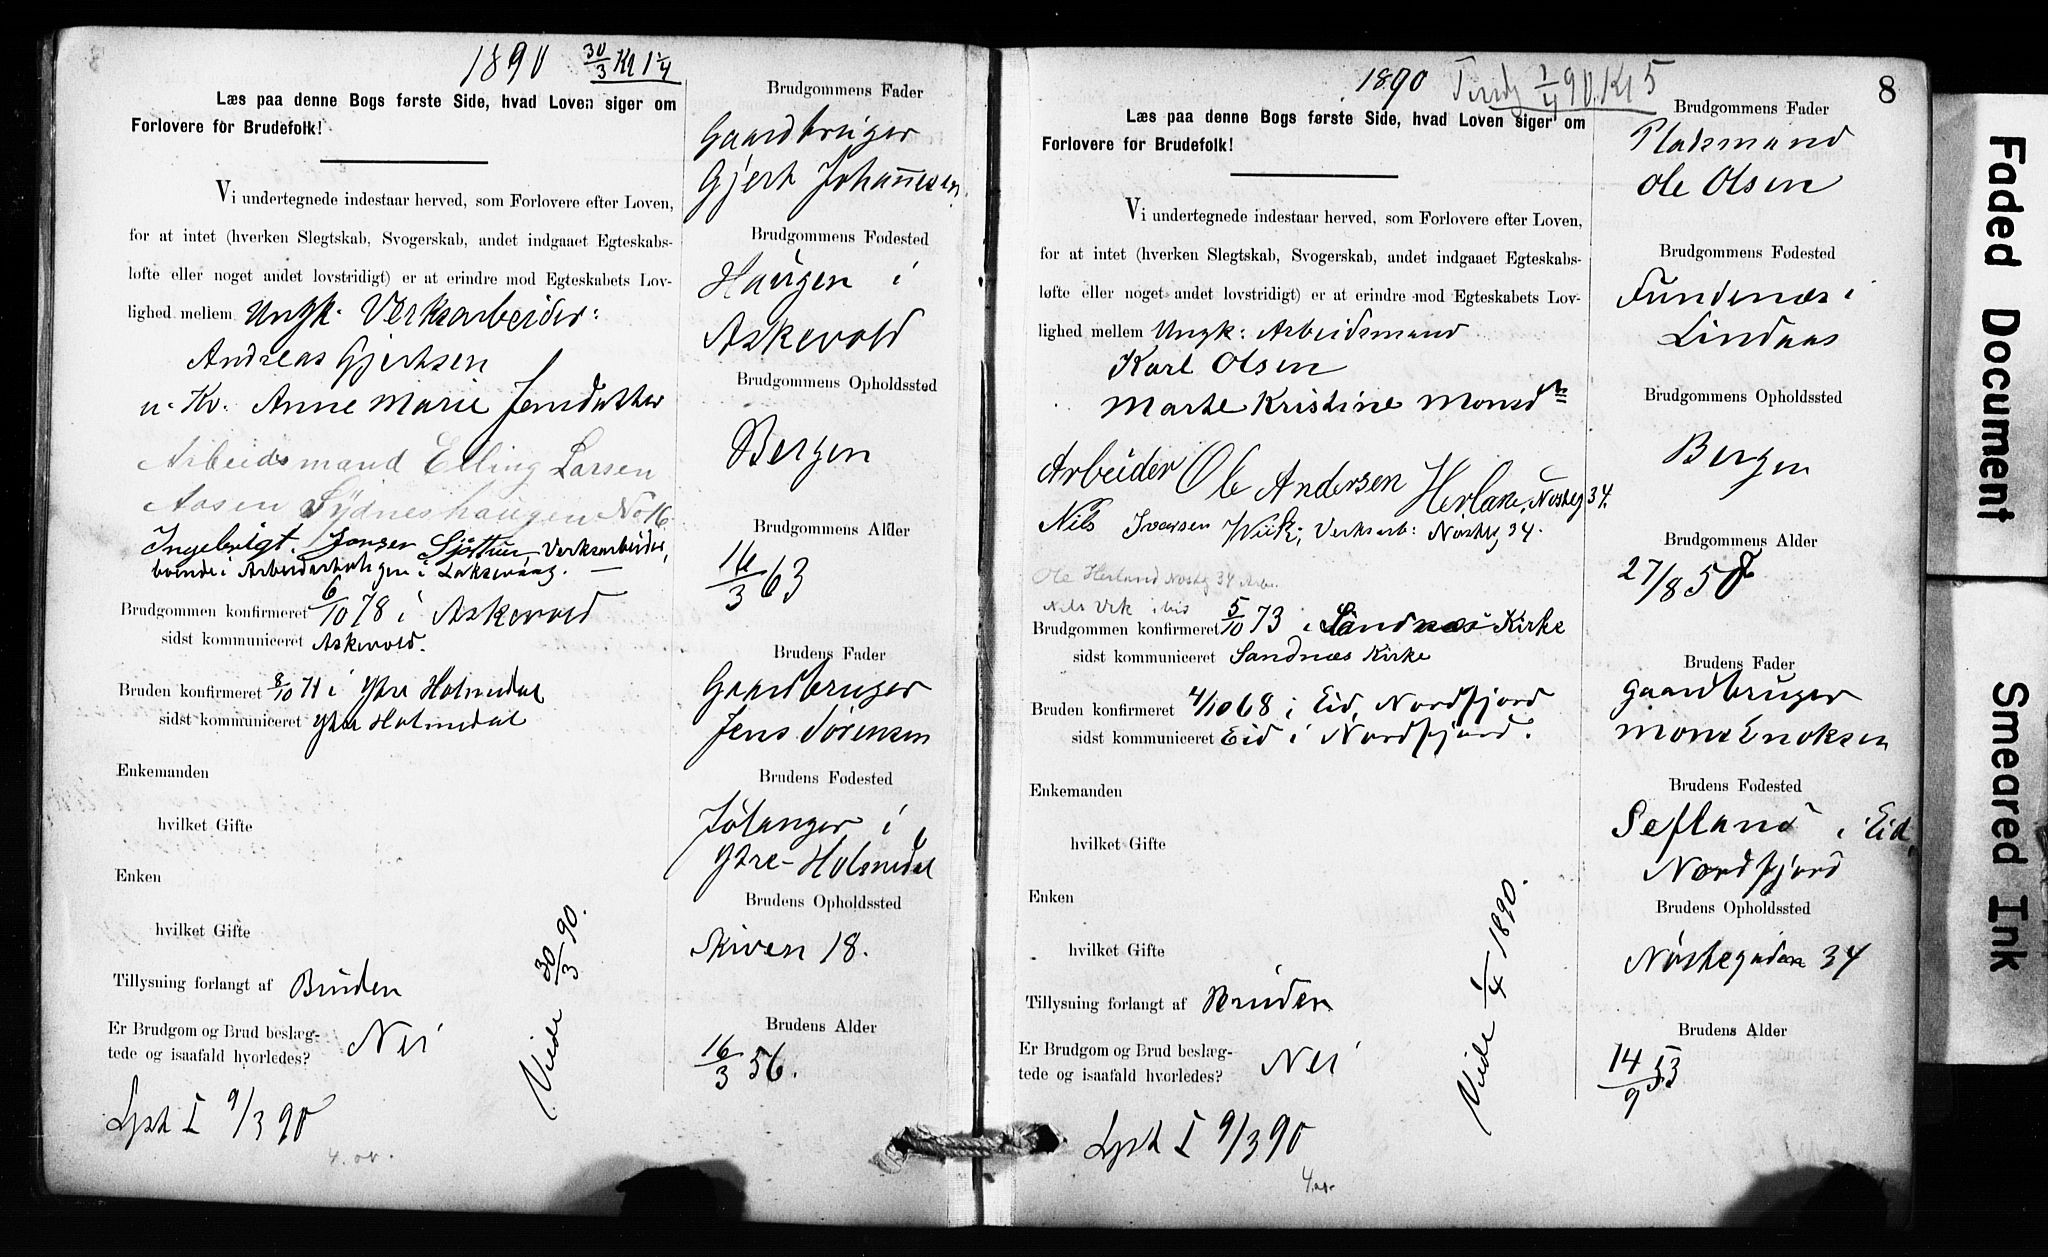 1890 30/3 Kl 1 1/4
Læs paa denne Bogs første Side, hvad Loven siger om
Forlovere for Brudefolk!
Vi undertegnede indestaar herved, som Forlovere efter Loven,
for at intet (hverken Slegtskab, Svogerskab, andet indgaaet Egteskabs-
løfte eller noget andet lovstridigt) er at erindre mod Egteskabets Lov-
lighed mellem Ungk. Verksarbeider:
Andreas Gjertsen
u. Kv. Anne Marie Jensdatter
Arbeidsmand Elling Larsen
Aasen Sydneshaugen No 16
Ingebrigt Jonsen Verksarbeider,
boende i Arbeiderboligen i Laksevaag.
Brudgommen konfirmeret 6/10 78 i Askevold
sidst kommuniceret Askevold.
Bruden konfirmeret 8/10 71 i Ytre Holmedal
sidst kommuniceret Ytre Holmedal
Enkemanden
hvilket Gifte
Enken
hvilket Gifte
Tillysning forlangt af Bruden
Er Brudgom og Brud beslæg-
tede og isaafald hvorledes? Nei
Viede 30/3 90.
Lyst I 9/3 90
4.00.
Brudgommens Fader
Gaardbruger
Gjert Johannesen.
Brudgommens Fødested
Haugen i
Askevold
Brudgommens Opholdssted
Bergen
Brudgommens Alder
16/3 63
Brudens Fader
Gaardbruger
Jens Sørensen
Brudens Fødested
Jølanger i
Ytre-Holmedal
Brudens Opholdssted
Skiven 18.
Brudens Alder
16/3 56.
8
1890 Tirsdg 1/4 90. Kl 5
Læs paa denne Bogs første Side, hvad Loven siger om
Forlovere for Brudefolk!
Vi undertegnede indestaar herved, som Forlovere efter Loven,
for at intet (hverken Slegtskab, Svogerskab, andet indgaaet Egteskabs-
løfte eller noget andet lovstridigt) er at erindre mod Egteskabets Lov-
lighed mellem Ungk: Arbeidsmand
Karl Olsen
Marte Kristine Monsd
Arbeider Ole Andersen Nosteg 34.
Nils Iversen Wiik; Verksarb: Nosteg 34.
Ole Herland Nosteg 34 Arb.
Nils Vik ibid
Brudgommen konfirmeret 5/10 73 i Sandnæs Kirke
sidst kommuniceret Sandnæs Kirke
Bruden konfirmeret 4/10 68 i Eid, Nordfjord
sidst kommuniceret Eid i Nordfjord.
Enkemanden
hvilket Gifte
Enken
hvilket Gifte
Tillysning forlangt af Bruden
Er Brudgom og Brud beslæg-
tede og isaafald hvorledes? Nei
Viede 1/4 1890.
Lyst I 9/3 90
4.00.
Brudgommens Fader
Pladsmand
Ole Olsen
Brudgommens Fødested
Fundenæs i
Lindaas
Brudgommens Opholdssted
Bergen
Brudgommens Alder
27/8 58
Brudens Fader
Gaardbruger
Mons Enoksen
Brudens Fødested
Sefland i Eid,
Nordfjord
Brudens Opholdssted
Nøstegaden 34
Brudens Alder
14/9 53
Faded Document
Smeared Ink